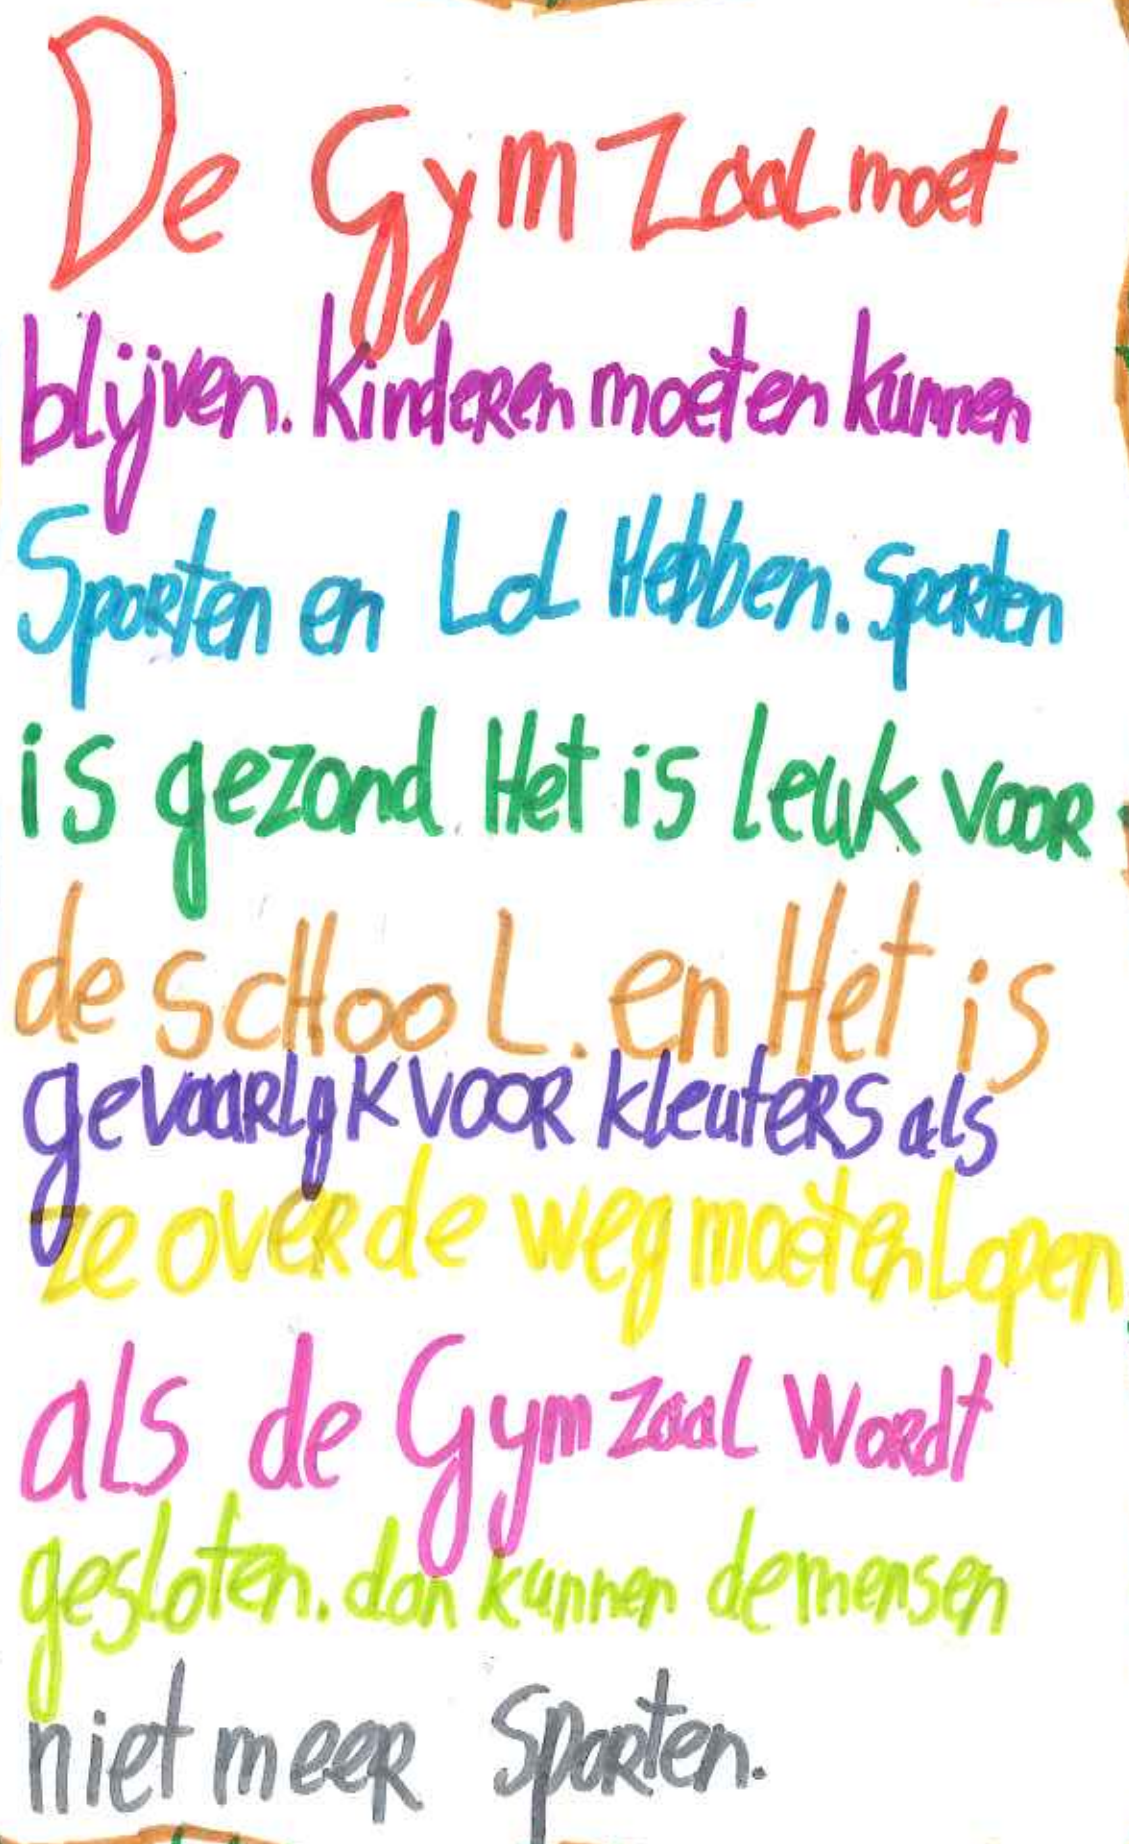 De Gym Zaal moet
blijven. Kinderen moeten kunnen
Sporten en Lol Hebben. Sporten
is gezond Het is leuk voor
de scHooL. en Het is
gevaarlijk voor kleuters als
ze over de weg moeten Lopen
als de Gym zaal wordt
gesloten. dan kunnen de mensen
niet meer Sporten.